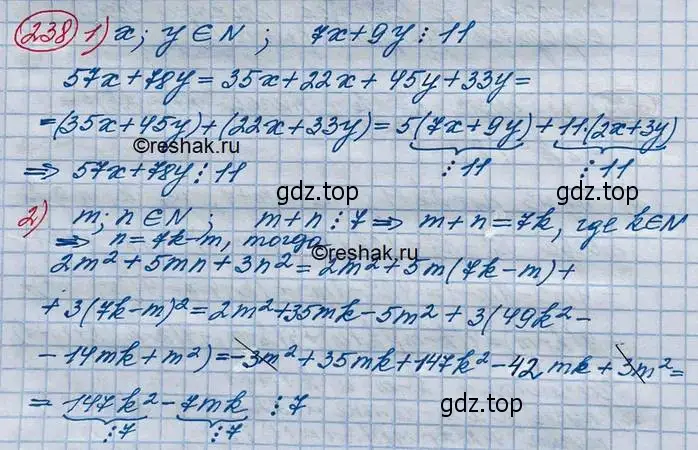 238 1) x; y ∈ N ; 7x+9y ⋮ 11
57x+78y = 35x+22x+45y+33y=
=(35x+45y)+(22x+33y)= 5(7x+9y)+11·(2x+3y)
⋮11 ⋮11
©reshak.ru
⇒ 57x+78y ⋮ 11
gdz.top
gdz.top
2) m; n ∈ N ; m+n ⋮ 7 ⇒ m+n=7k, где k∈N
⇒ n=7k-m, тогда
2m²+5mn+3n²=2m²+5m(7k-m)+
+3(7k-m)²=2m²+35mk-5m²+3(49k²-
-14mk+m²)=-3m²+35mk+147k²-42mk+3m²=
= 147k²-7mk ⋮7
⋮7 ⋮7
©reshak.ru
gdz.top
gdz.top